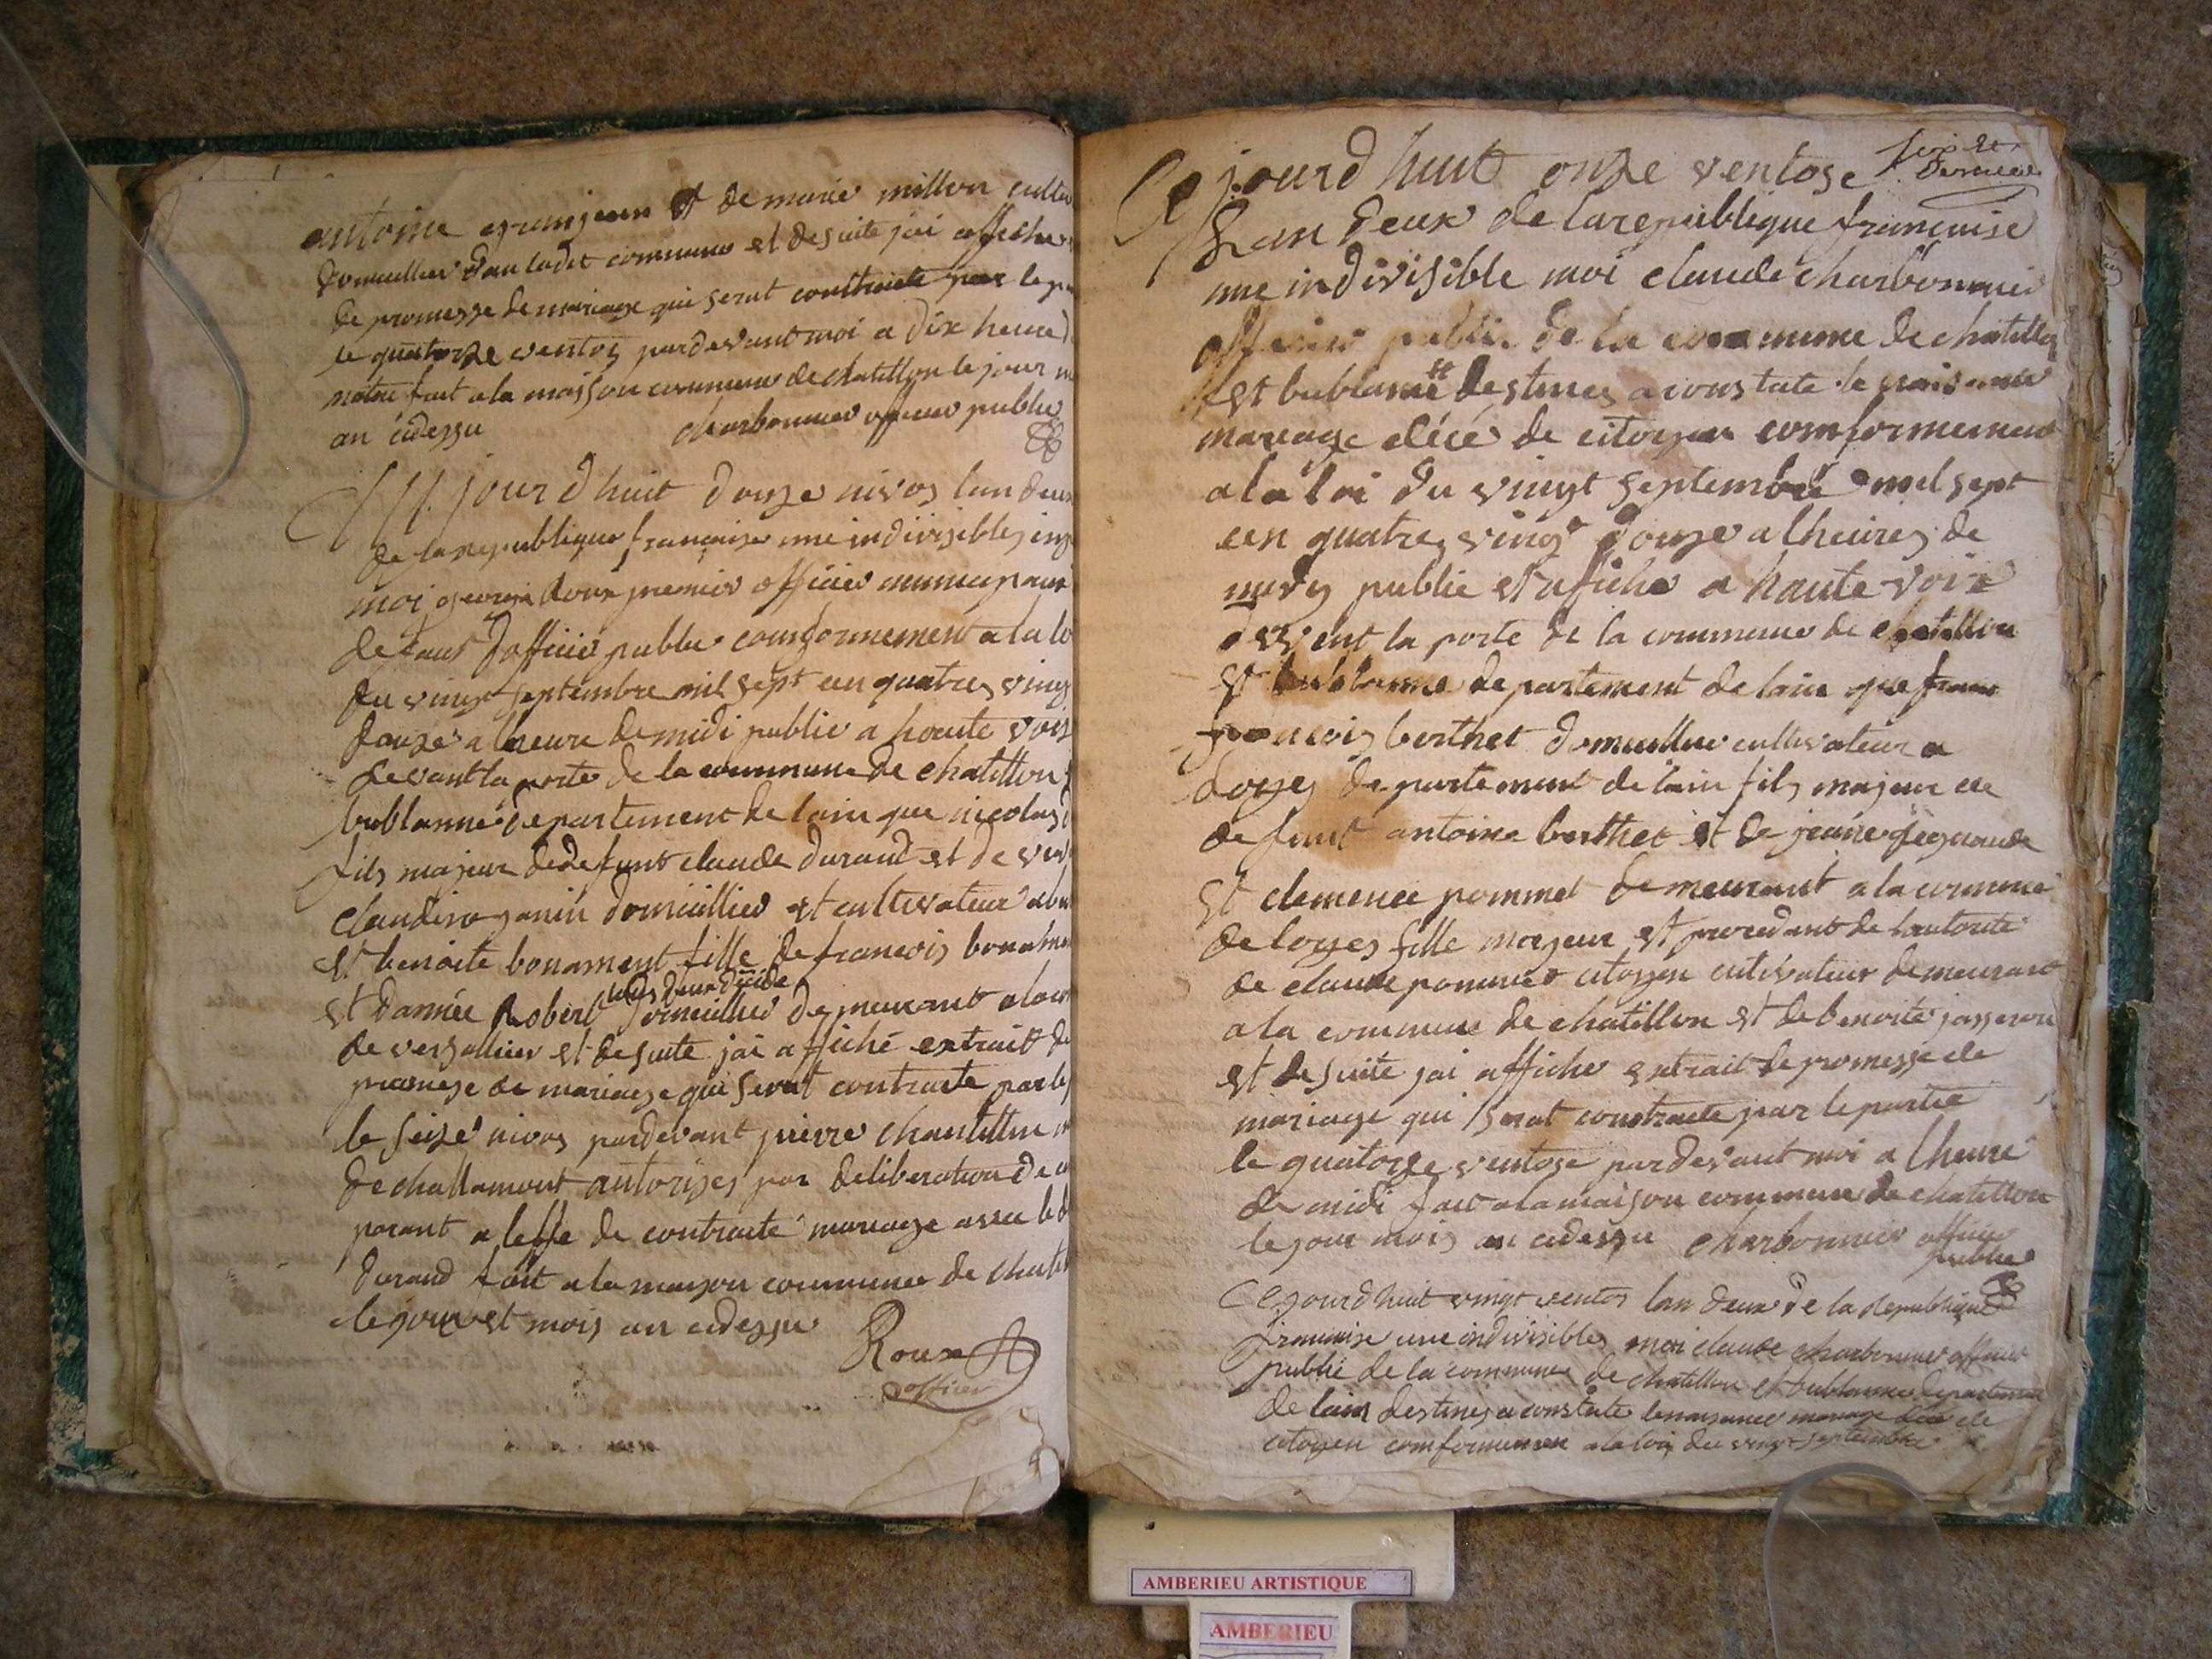 antoine egranjean et de marie millon culti
domicillier dan ladit commune et de suite jai affiche
de promesse de mariage qui serat contracte par le pa
le quatorze ventos pardevant moi a dix heure
matin fait a la maison commune de chatillon le jour m
an cidessu charbonnier officier public
jourdhuit douze nivos lan deux
de la republique francaise une indivisibles
moi george roux premier officier municipaux
de faus dofficier public conformement a la lo
du vingt septembre mil sept cen quatres ving
douze a lheure de midi public a haute voix
devant la porte de la commune de chatillon
bublanne departement de lain que nicolas
fils majeur de defunt claude durand et de
claudine janin domicillier et cultivateur
et benoite bonament fille de francois bonamen
tous deux
et dannée Robert domicillier demeurant a la
de versallieu et de suite jai affiché extrait de
promese de mariage qui serat contracte par le
le seize nivos pardevant pierre chantillon
de challamont autorises par deliberation de
parant a leffe de contracte mariage avec led
durand fait a la maison commune de chat
le jour et mois an cidessu
Roux
officier
six et
derniere
Ce jourdhuit onze ventose
Lan deux de la republique francaise
une indivisible moi claude charbonnier
officier public de la commune de chatillon
et bublanne destines a constate le naisance
mariage décé de citoyen comformement
a la loi du vingt septembre mil sept
cen quatres vingt douze a lheures de
midy public et affiche a haute voix
devent la porte de la commune de chatillon
et bublanne departement de lain que
francois berthet domicillie cultivateur a
loyes departement de lain fils majeur de
defunt antoine berthet et de jeanne
et clemence pommet demeurant a la commune
de loyes fille majeur et procedant de lautorite
de claude pommet citoyen cultivateur demeurant
a la commune de chatillon et de benoite josserand
et de suite jai affiche extrait de promesse de
mariage qui serat contracte par le partie
le quatorze ventose pardevant moi a lheure
de midi fait a la maison commune de chatillon
le jour mois an cidessu charbonnier officier
public
Ce jourdhuit vingt ventos lan deux de la republique
francaise une indivisibles moi claude charbonnier officier
public de la commune de chatillon et bublanne departement
de lain destines a constate le naisance mariage décé de
citoyen comformemen a la loi du vingt septembre
AMBERIEU ARTISTIQUE
AMBERIEU